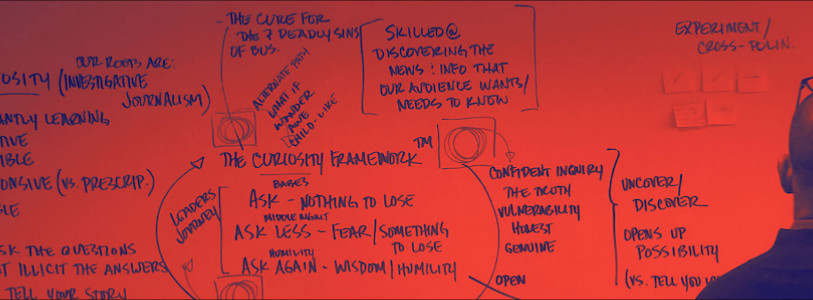 OUR ROOTS ARE:
OSITY (INVESTIGATIVE
JOURNALISM)
ANTLY LEARNING
TIVE
IBLE
ONSIVE (VS. PRESCRIP.)
LE
SK THE QUESTIONS
T ILLICIT THE ANSWERS
TELL YOUR STORY
- THE CURE FOR
THE 7 DEADLY SINS
OF BUS.
ALTERNATE PATH
WHAT IF
WONDER
AWE
CHILD-LIKE
SKILLED@
DISCOVERING THE
NEWS: INFO THAT
OUR AUDIENCE WANTS/
NEEDS TO KNOW
EXPERIMENT/
CROSS-POLLIN.
THE CURIOSITY FRAMEWORK TM
LEADERS
JOURNEY
BABES
ASK - NOTHING TO LOSE
MIDDLE MGMT
ASK LESS - FEAR/SOMETHING
TO LOSE
HUMILITY
ASK AGAIN - WISDOM/HUMILITY
CONFIDENT INQUIRY
THE TRUTH
VULNERABILITY
HONEST
GENUINE
OPEN
UNCOVER/
DISCOVER
OPENS UP
POSSIBILITY
(VS. TELL YOU